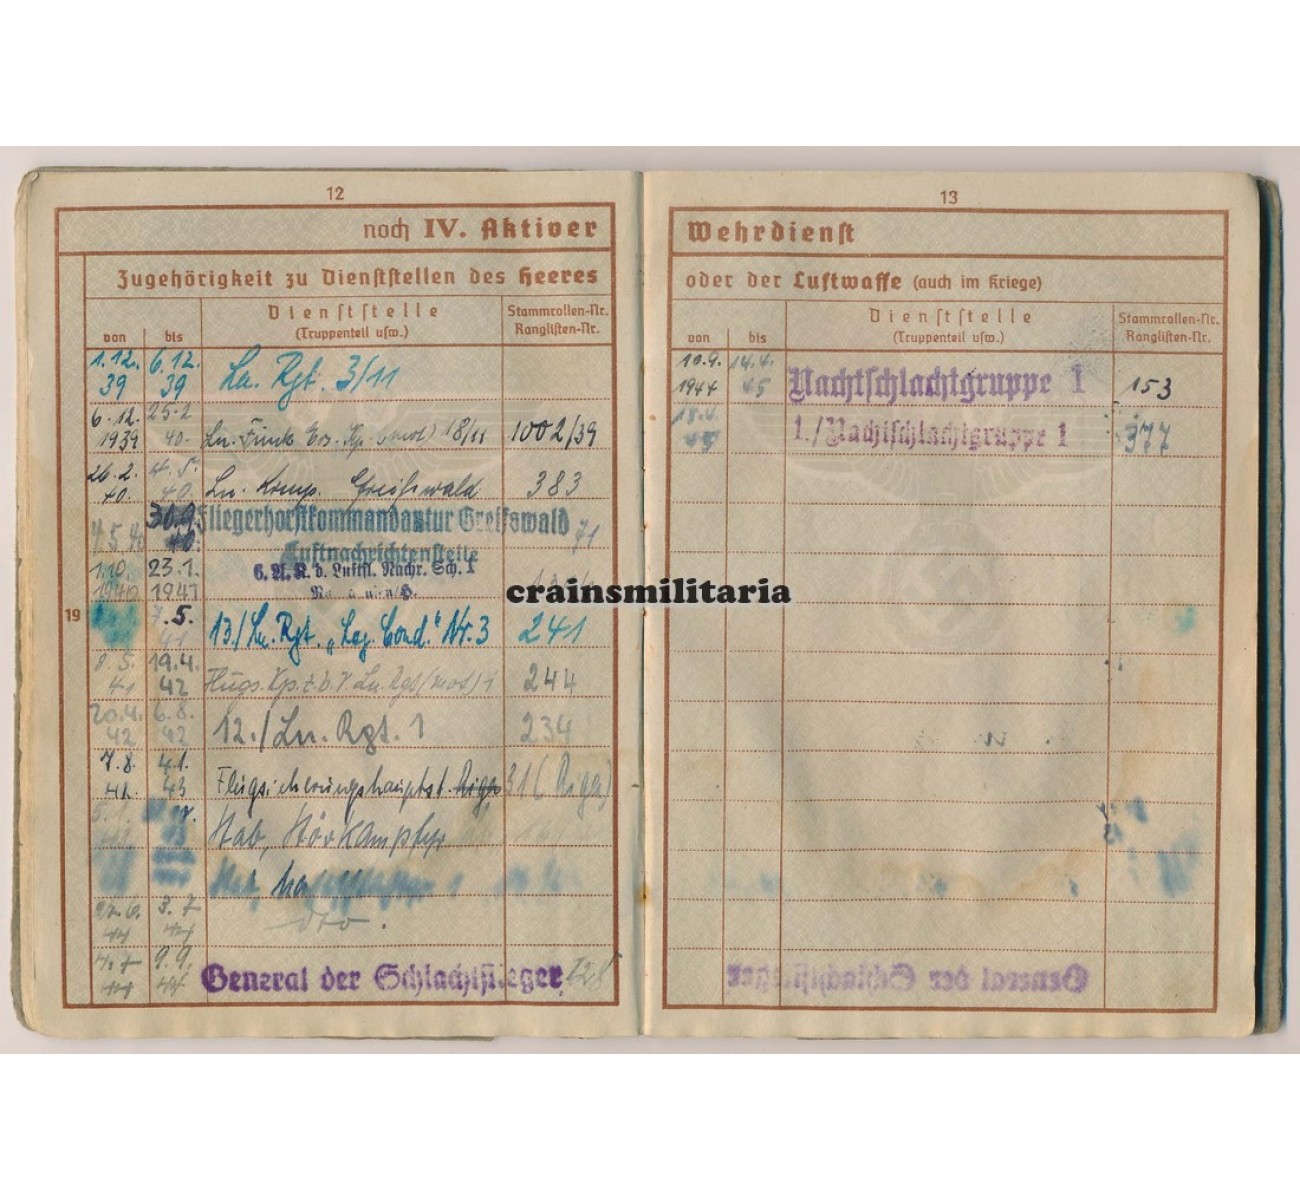 12
noch IV. Aktiver
Zugehörigkeit zu Dienststellen des Heeres
von
bis
Dienststelle
(Truppenteil usw.)
Stammrollen-Nr.
Ranglisten-Nr.
19
1.12. 39
6.12. 39
Ln. Rgt. 3/11
6.12. 1939
25.2 40.
Ln. Funk Ers. Kp. (mot) 18/11
1002/39
26.2. 40.
4.5. 40.
Ln. Komp. Greifswald
383
4.5.40
30.9. 40.
Fliegerhorstkommandantur Greifswald
Luftnachrichtenstelle
71
1.10. 1940
23.1. 1941
6. A.K. d. Luftfl. Nachr. Sch. 1
7.5. 41
13./Ln. Rgt. „Leg. Cond." Nr. 3
241
8.5. 41
19.4. 42
Flugs. Kp. z.b.V. Ln. Rgt (mot) 1
244
20.4. 42
6.8. 42
12./Ln. Rgt. 1
234
7.8. 42
4.1. 43
Flugsicherungshauptst. Riga
31 (Riga)
5.1. 43
Stab, Störkampfgr
dto.
3.7 44
4.7 44
9.9. 44
General der Schlachtflieger
128
13
Wehrdienst
oder der Luftwaffe (auch im Kriege)
von
bis
Dienststelle
(Truppenteil usw.)
Stammrollen-Nr.
Ranglisten-Nr.
10.9. 1944
14.4. 45
Nachtschlachtgruppe 1
153
18.4. 45
1./Nachtschlachtgruppe 1
377
crainsmilitaria